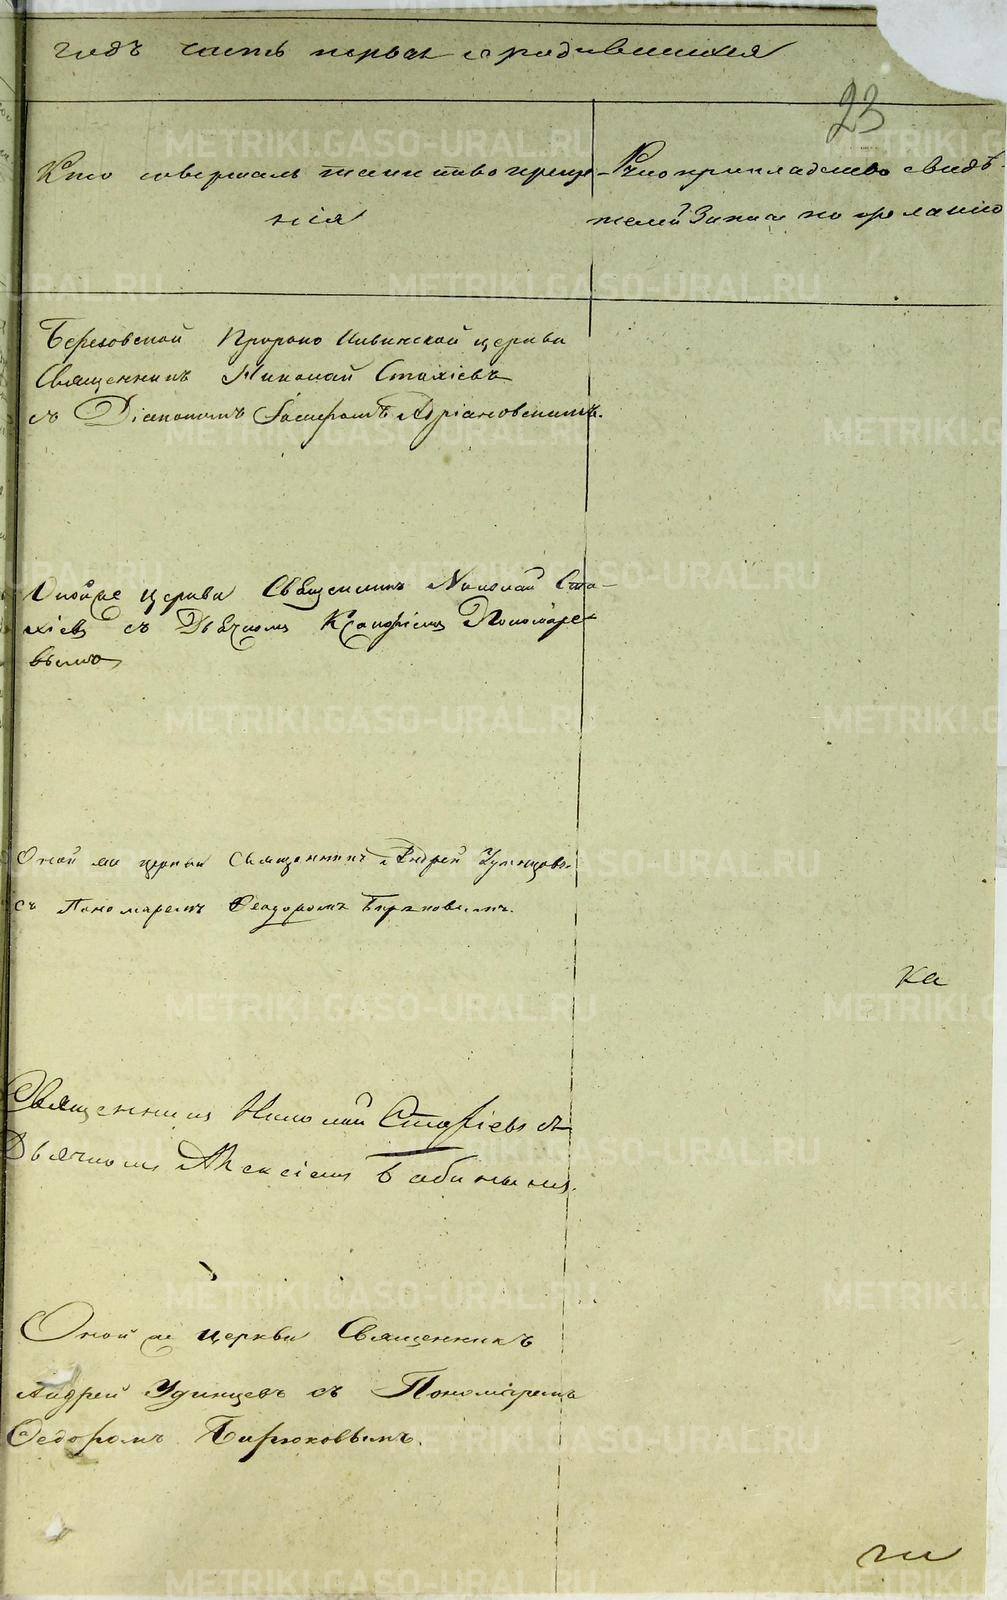 годъ часть первая о родившихся
23
Кто совершалъ таинство креще-
нія
Рукоприкладство свидѣ-
телей записи по желанію
Березовской Пророко Ильинской церкви
Священникъ Николай Стахіевъ
съ Діакономъ Адріановскимъ.
Оной же церкви Священникъ Николай Ста-
хіевъ съ Дьячкомъ Пономаре-
вымъ
Оной же церкви Священникъ Андрей Удинцовъ
съ Пономаремъ Феодоромъ Бирюковымъ.
ка
Священникъ Николай Стахіевъ съ
Дьячкомъ Алексіемъ Бабинымъ.
Оной же церкви Священникъ
Андрей Удинцевъ съ Пономаремъ
Федоромъ Бирюковымъ.
ги
METRIKI.GASO-URAL.RU